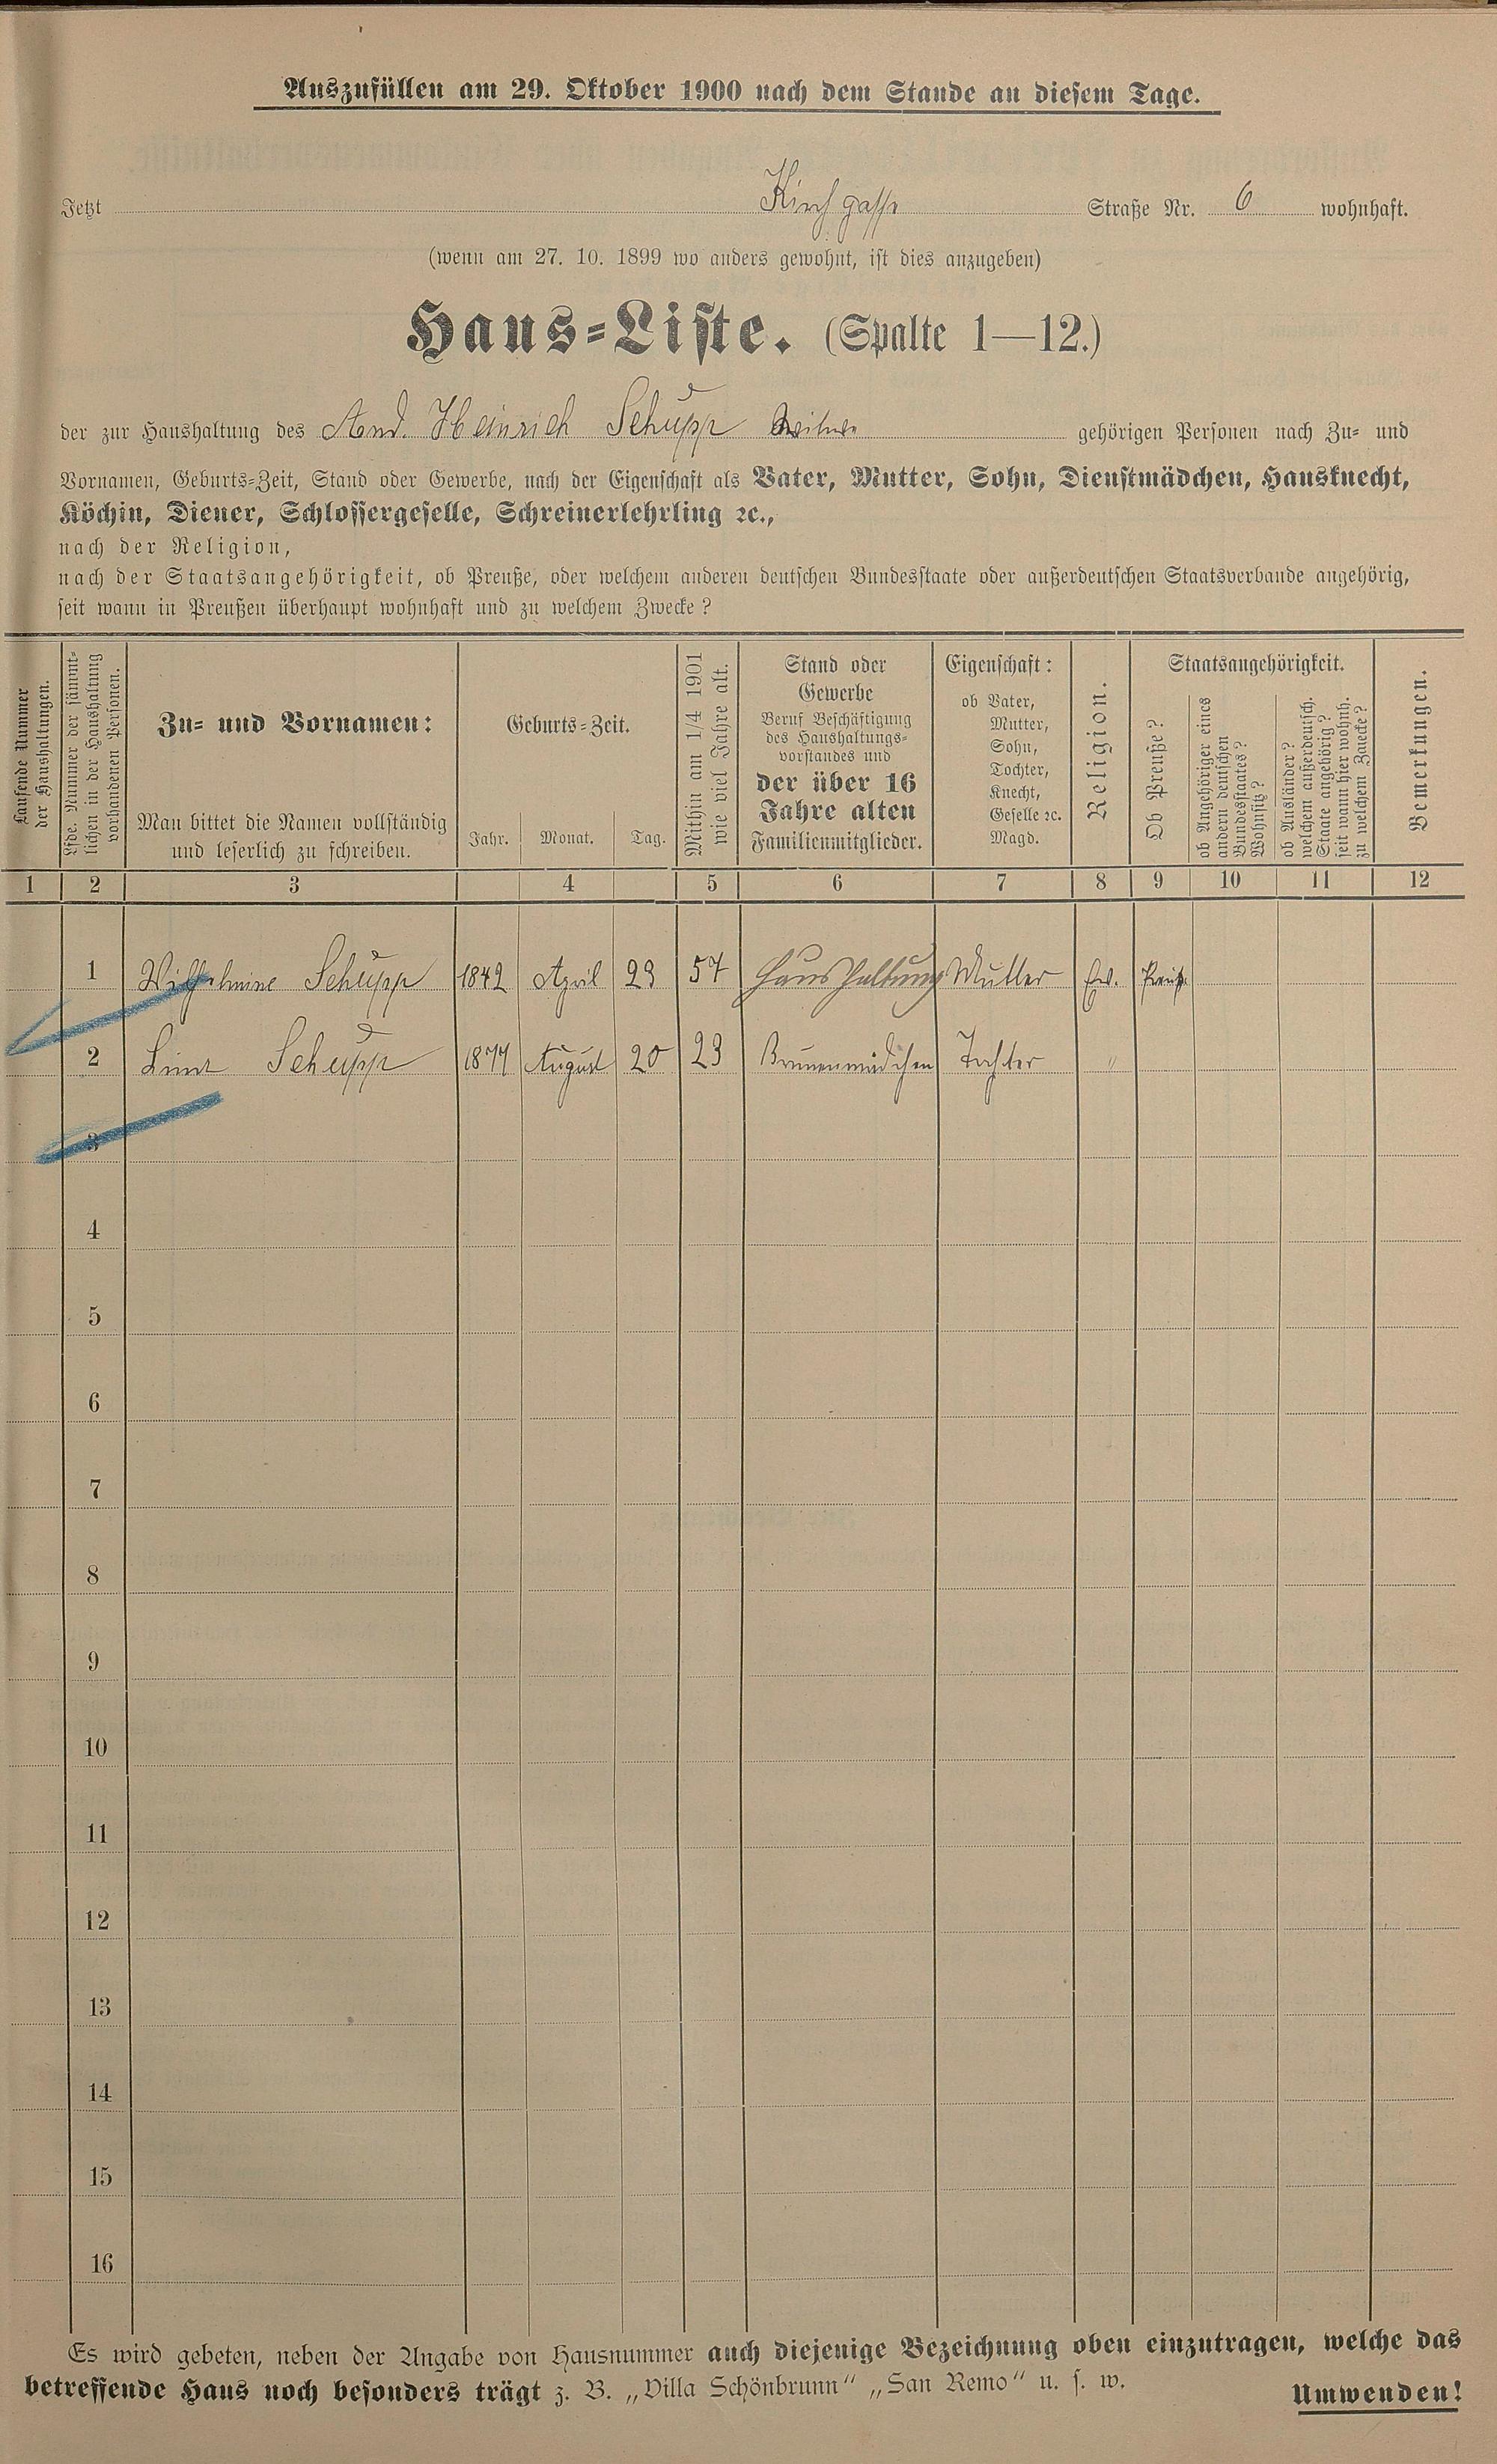 Auszufüllen am 29. Oktober 1900 nach dem Stande an diesem Tage.
Jetzt Kirchgasse Straße Nr. 6 wohnhaft.
(wenn am 27. 10. 1899 wo anders gewohnt, ist dies anzugeben)
Haus-Liste. (Spalte 1—12.)
der zur Haushaltung des And. Heinrich Schupp Witwe gehörigen Personen nach Zu- und
Vornamen, Geburts-Zeit, Stand oder Gewerbe, nach der Eigenschaft als Vater, Mutter, Sohn, Dienstmädchen, Hausknecht,
Köchin, Diener, Schlossergeselle, Schreinerlehrling ꝛc.,
nach der Religion,
nach der Staatsangehörigkeit, ob Preuße, oder welchem anderen deutschen Bundesstaate oder außerdeutschen Staatsverbande angehörig,
seit wann in Preußen überhaupt wohnhaft und zu welchem Zwecke?
Laufende Nummer
der Haushaltungen.
Lfde. Nummer der sämmt-
lichen in der Haushaltung
vorhandenen Personen.
Zu- und Vornamen:
Man bittet die Namen vollständig
und leserlich zu schreiben.
Geburts-Zeit.
Jahr. Monat. Tag.
Mithin am 1/4 1901
wie viel Jahre alt.
Stand oder
Gewerbe
Beruf Beschäftigung
des Haushaltungs-
vorstandes und
der über 16
Jahre alten
Familienmitglieder.
Eigenschaft:
ob Vater,
Mutter,
Sohn,
Tochter,
Knecht,
Geselle ꝛc.
Magd.
Religion.
Staatsangehörigkeit.
Ob Preuße?
ob Angehöriger eines
andern deutschen
Bundesstaates?
Wohnsitz?
ob Ausländer?
welchem außerdeutsch.
Staate angehörig?
seit wann hier wohnh.
zu welchem Zwecke?
Bemerkungen.
1 2 3 4 5 6 7 8 9 10 11 12
1 Wilhelmine Schupp 1842 April 23 57 Haushaltung Mutter Ev. Preuß.
2 Lina Schupp 1877 August 20 23 Brunnenmädchen Tochter "
3
4
5
6
7
8
9
10
11
12
13
14
15
16
Es wird gebeten, neben der Angabe von Hausnummer auch diejenige Bezeichnung oben einzutragen, welche das
betreffende Haus noch besonders trägt z. B. „Villa Schönbrunn“ „San Remo“ u. s. w.
Umwenden!